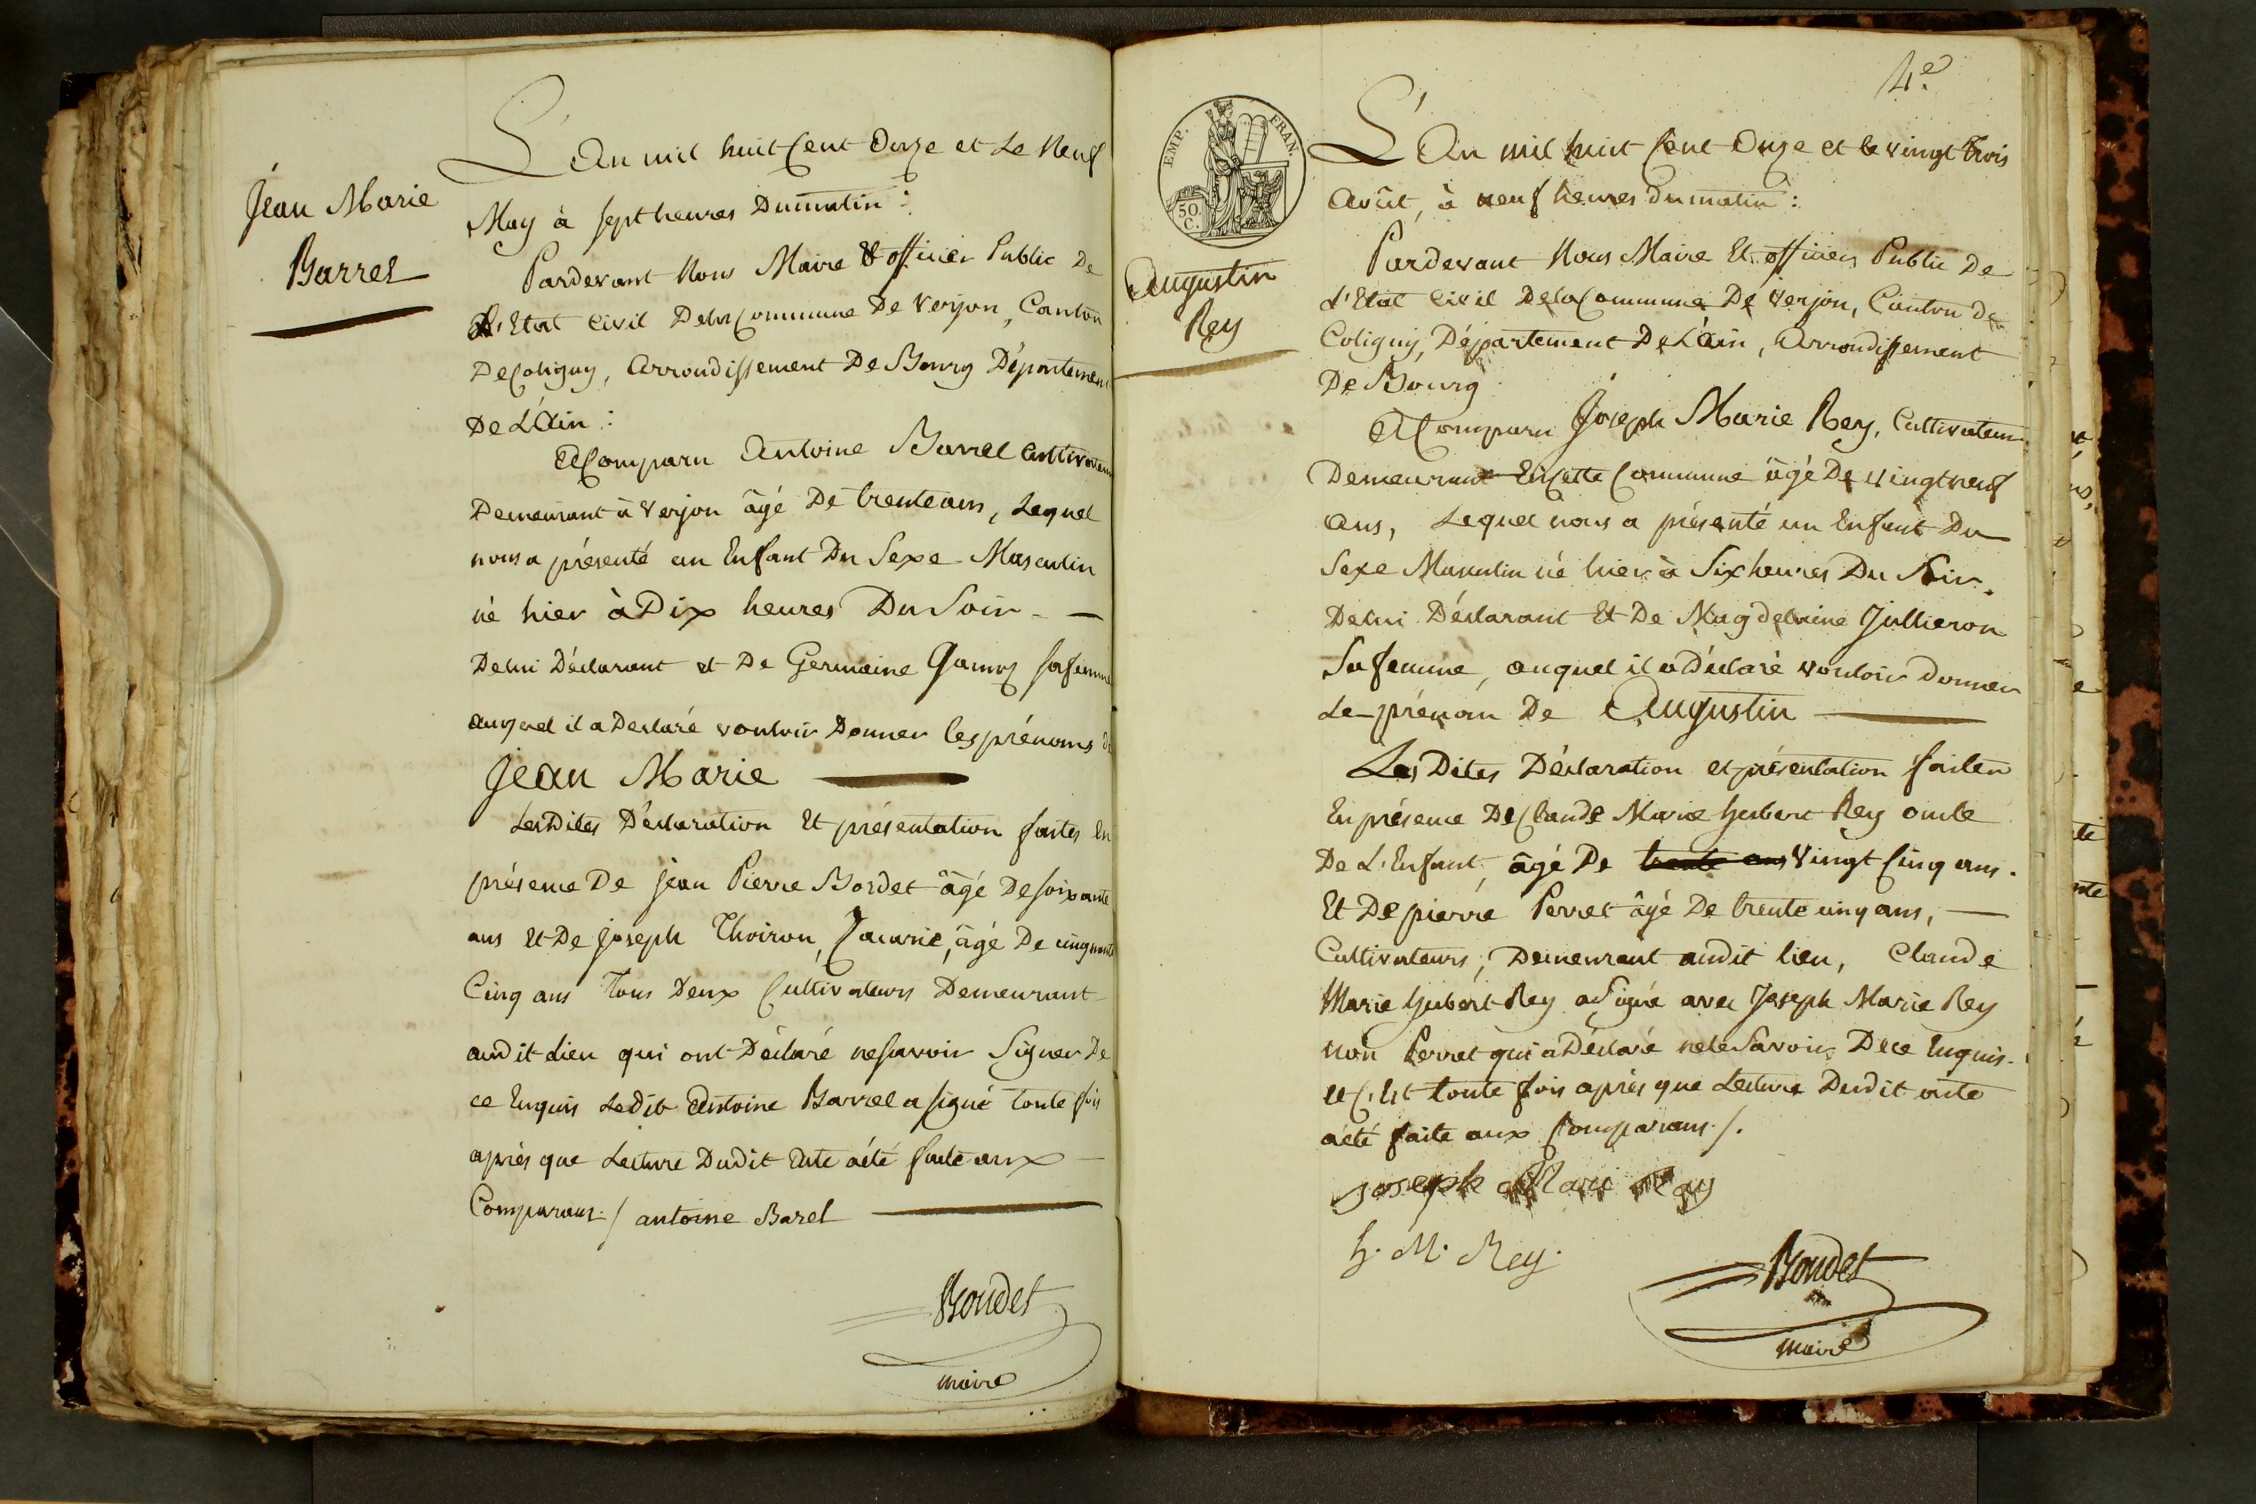 Jean Marie
Barrel
L'An mil huit Cent Onze et Le Neuf
May à sept heures Dumatin :
Pardevant Nous Maire & officier Public De
L'Etat Civil Dela Commune De Verjon, Canton
De Coligny, Arrondissement De Bourg Département
De L'Ain :
A Comparu Antoine Barrel Cultivateur
Demeurant à Verjon âgé De trente ans, Lequel
nous a présenté un Enfant Du Sexe Masculin
né hier à Dix heures Du Soir - —
Delui Déclarant et De Germaine sa femme
auquel il a Declaré vouloir Donner les prénoms de
Jean Marie —
Les Dites Déclaration Et présentation faites En
présence De jean Pierre Bordet âgé De soixante
ans Et De Joseph Thoiron, Zacarie, âgé De cinquante
Cinq ans Tous Deux Cultivateurs Demeurant
audit Lieu qui ont Déclaré ne savoir Signer De
ce Enquis Ledit Antoine Barrel a signé toute fois
après que Lecture Dudit Acte a été faite aux —
Comparans ./ antoine Barel —
Boudet
maire
4e
EMP. FRAN.
50.
C.
Augustin
Rey
L'An mil huit Cent Onze et le vingt Trois
Août, à neuf heures du matin :
Pardevant Nous Maire Et officier Public De
L'Etat Civil Dela Commune De Verjon, Canton de
Coligny, Département De L'Ain, Arrondissement
De Bourg
A Comparu Joseph Marie Rey, Cultivateur
Demeurant En Cette Commune âgé De vingt neuf
ans, Lequel nous a présenté un Enfant Du
Sexe Masculin né hier à Six heures Du Soir.
Delui Déclarant Et De Magdelaine Jullieron
Sa femme, auquel il a Déclaré vouloir donner
Le prénom De Augustin —
Les Dites Déclaration et présentation faites
En présence De Claude Marie hubert Rey oncle
De L'Enfant, âgé De trente ans Vingt Cinq ans.
Et De pierre Perret âgé De trente cinq ans, —
Cultivateurs, Demeurant audit lieu, Claude
Marie hubert Rey a Signé avec Joseph Marie Rey
non Perret qui a Déclaré ne le Savoir De ce Enquis.
et C'Est toute fois après que Lecture Dudit acte
a été faite aux Comparans ./.
joseph Marie Rey
h. M. Rey.
Boudet
maire